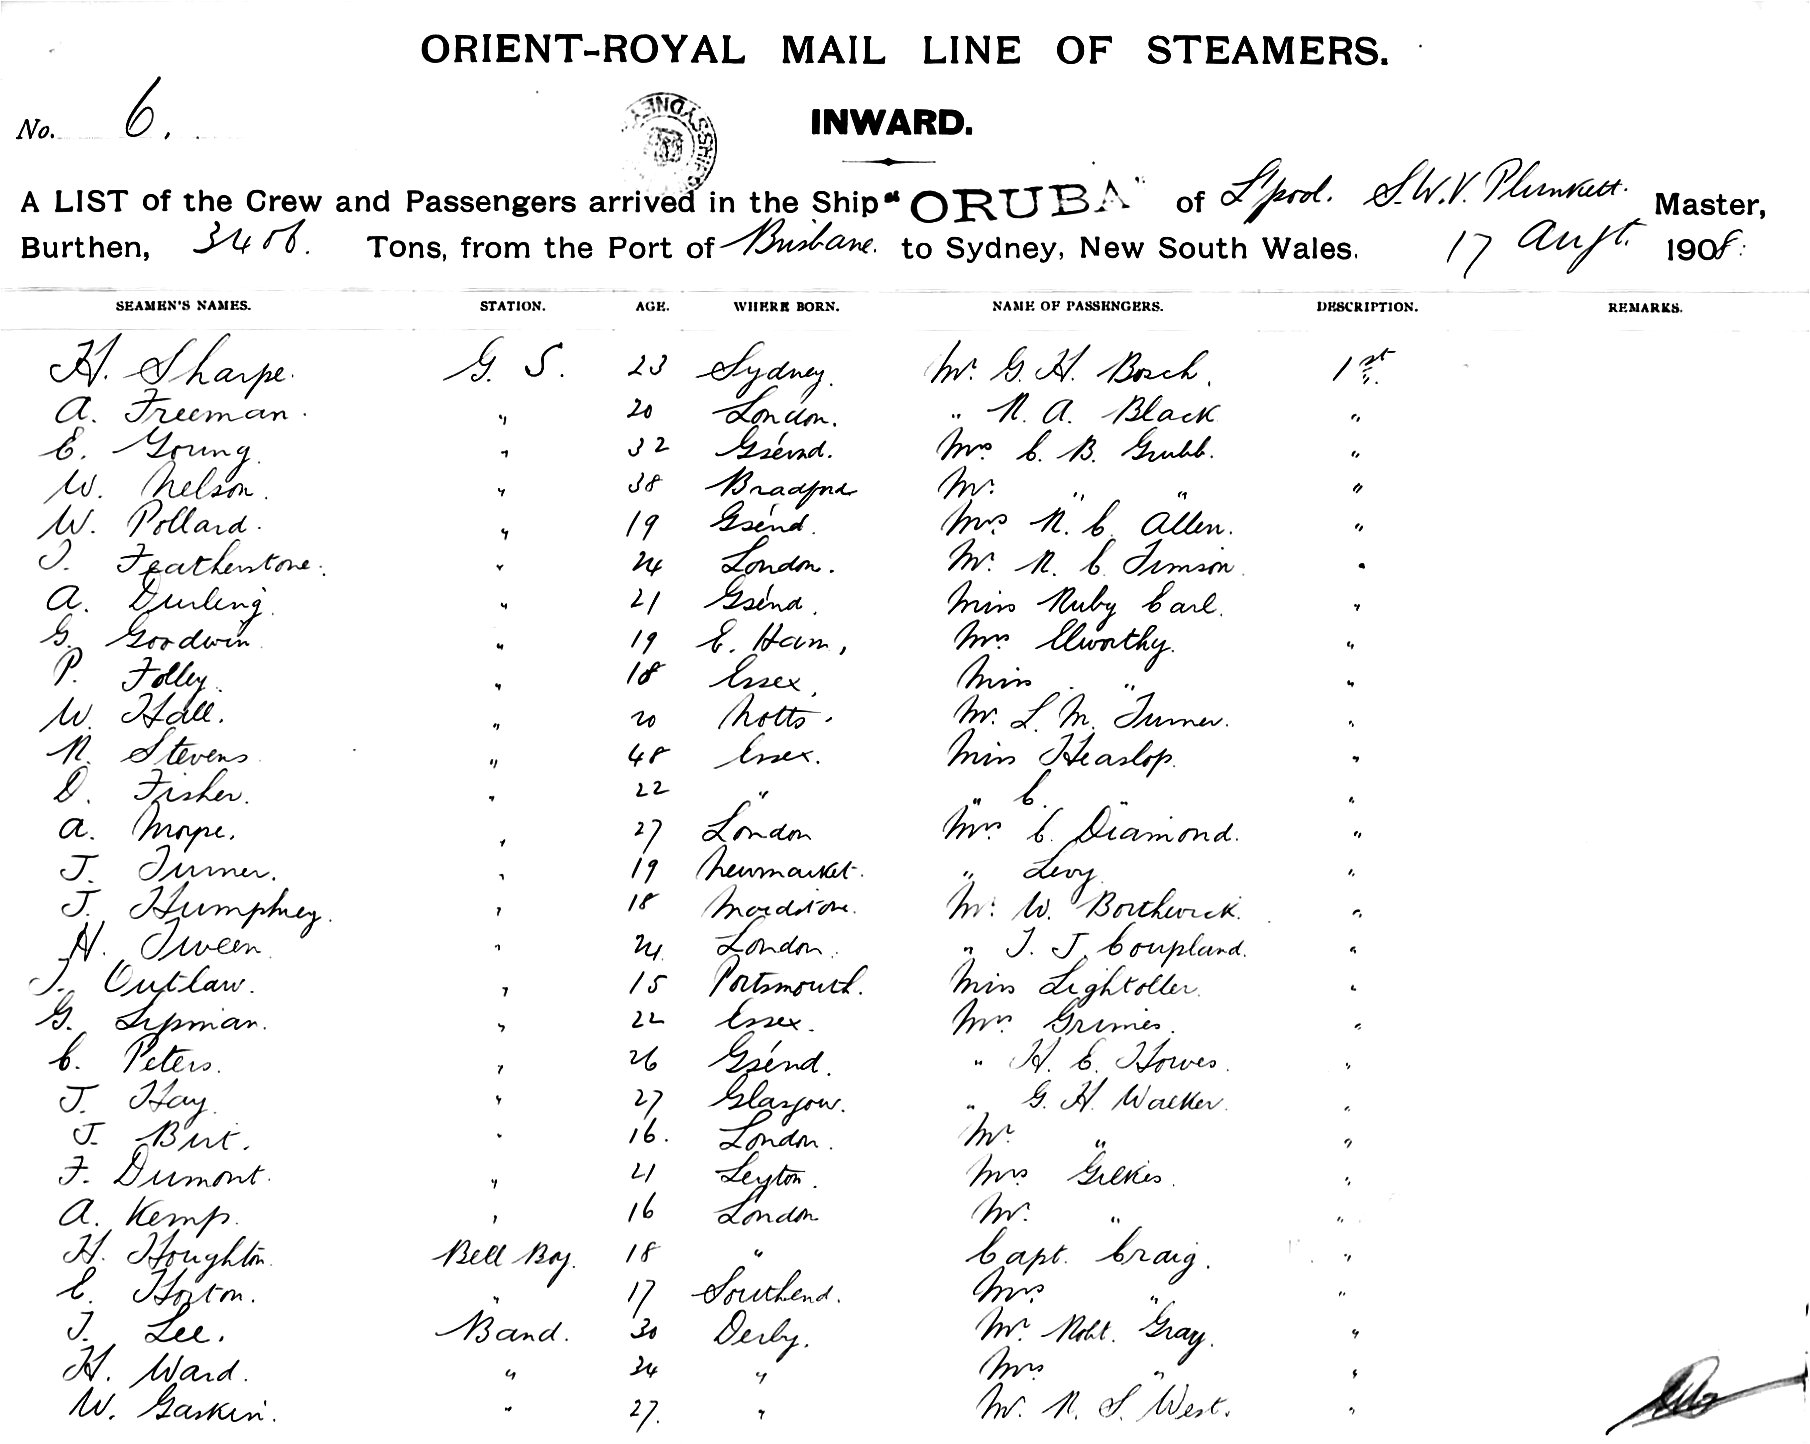 ORIENT-ROYAL MAIL LINE OF STEAMERS.
No. 6.
INWARD.
A LIST of the Crew and Passengers arrived in the Ship "ORUBA" of L'pool. S.W.V. Plunkett. Master,
Burthen, Tons, from the Port of Brisbane. to Sydney, New South Wales. 17 Augt. 1908.
SEAMEN'S NAMES. STATION. AGE. WHERE BORN. NAME OF PASSENGERS. DESCRIPTION. REMARKS.
H. Sharpe. G. S. 23 Sydney. Mr. G. H. Bosch. 1st
A. Freeman. " 20 London. " R. A. Black "
E. Young. " 32 G'send. Mrs C. B. Grubb. "
W. Nelson. " 38 Bradford Mr. " " "
W. Pollard. " 19 G'send. Mrs R. C. Allen. "
T. Featherstone. " 24 London. Mr. R. C. Timson "
A. Durling. " 21 G'send. Miss Ruby Carl. "
G. Goodwin. " 19 E. Ham, Mrs Elworthy. "
P. Folley. " 18 Essex. Miss " "
W. Hall. " 20 Notts. Mr. L. M. Turner. "
R. Stevens " 48 Essex. Miss Heaslop. "
D. Fisher. " 22 " " C. " "
A. " 27 London Mrs C. Diamond. "
J. Turner. " 19 Newmarket. " Levy "
J. Humphrey. " 18 Maidstone. Mr. W. Borthwick. "
H. Tween " 24 London. " T. J. Coupland. "
T. Outlaw. " 15 Portsmouth. Miss Lightoller. "
G. Lipman. " 22 Essex. Mrs Grimes. "
C. Peters. " 26 G'send. " H. C. Howes. "
J. Hay " 27 Glasgow. " G. H. Walker. "
J. Burt. " 16. London. Mr " "
F. Dumont. " 21 Leyton. Mrs Gilkes. "
A. Kemp. " 16 London Mr. " "
H. Houghton. Bell Boy. 18 " Capt. Craig. "
E. Horton. " 17 Southend. Mrs " "
T. Lee. Band. 30 Derby. Mr. Robt. Gray. "
H. Ward. " 34 " Mrs " "
W. Gaskin. " 27. " Mr. R. S. West. "